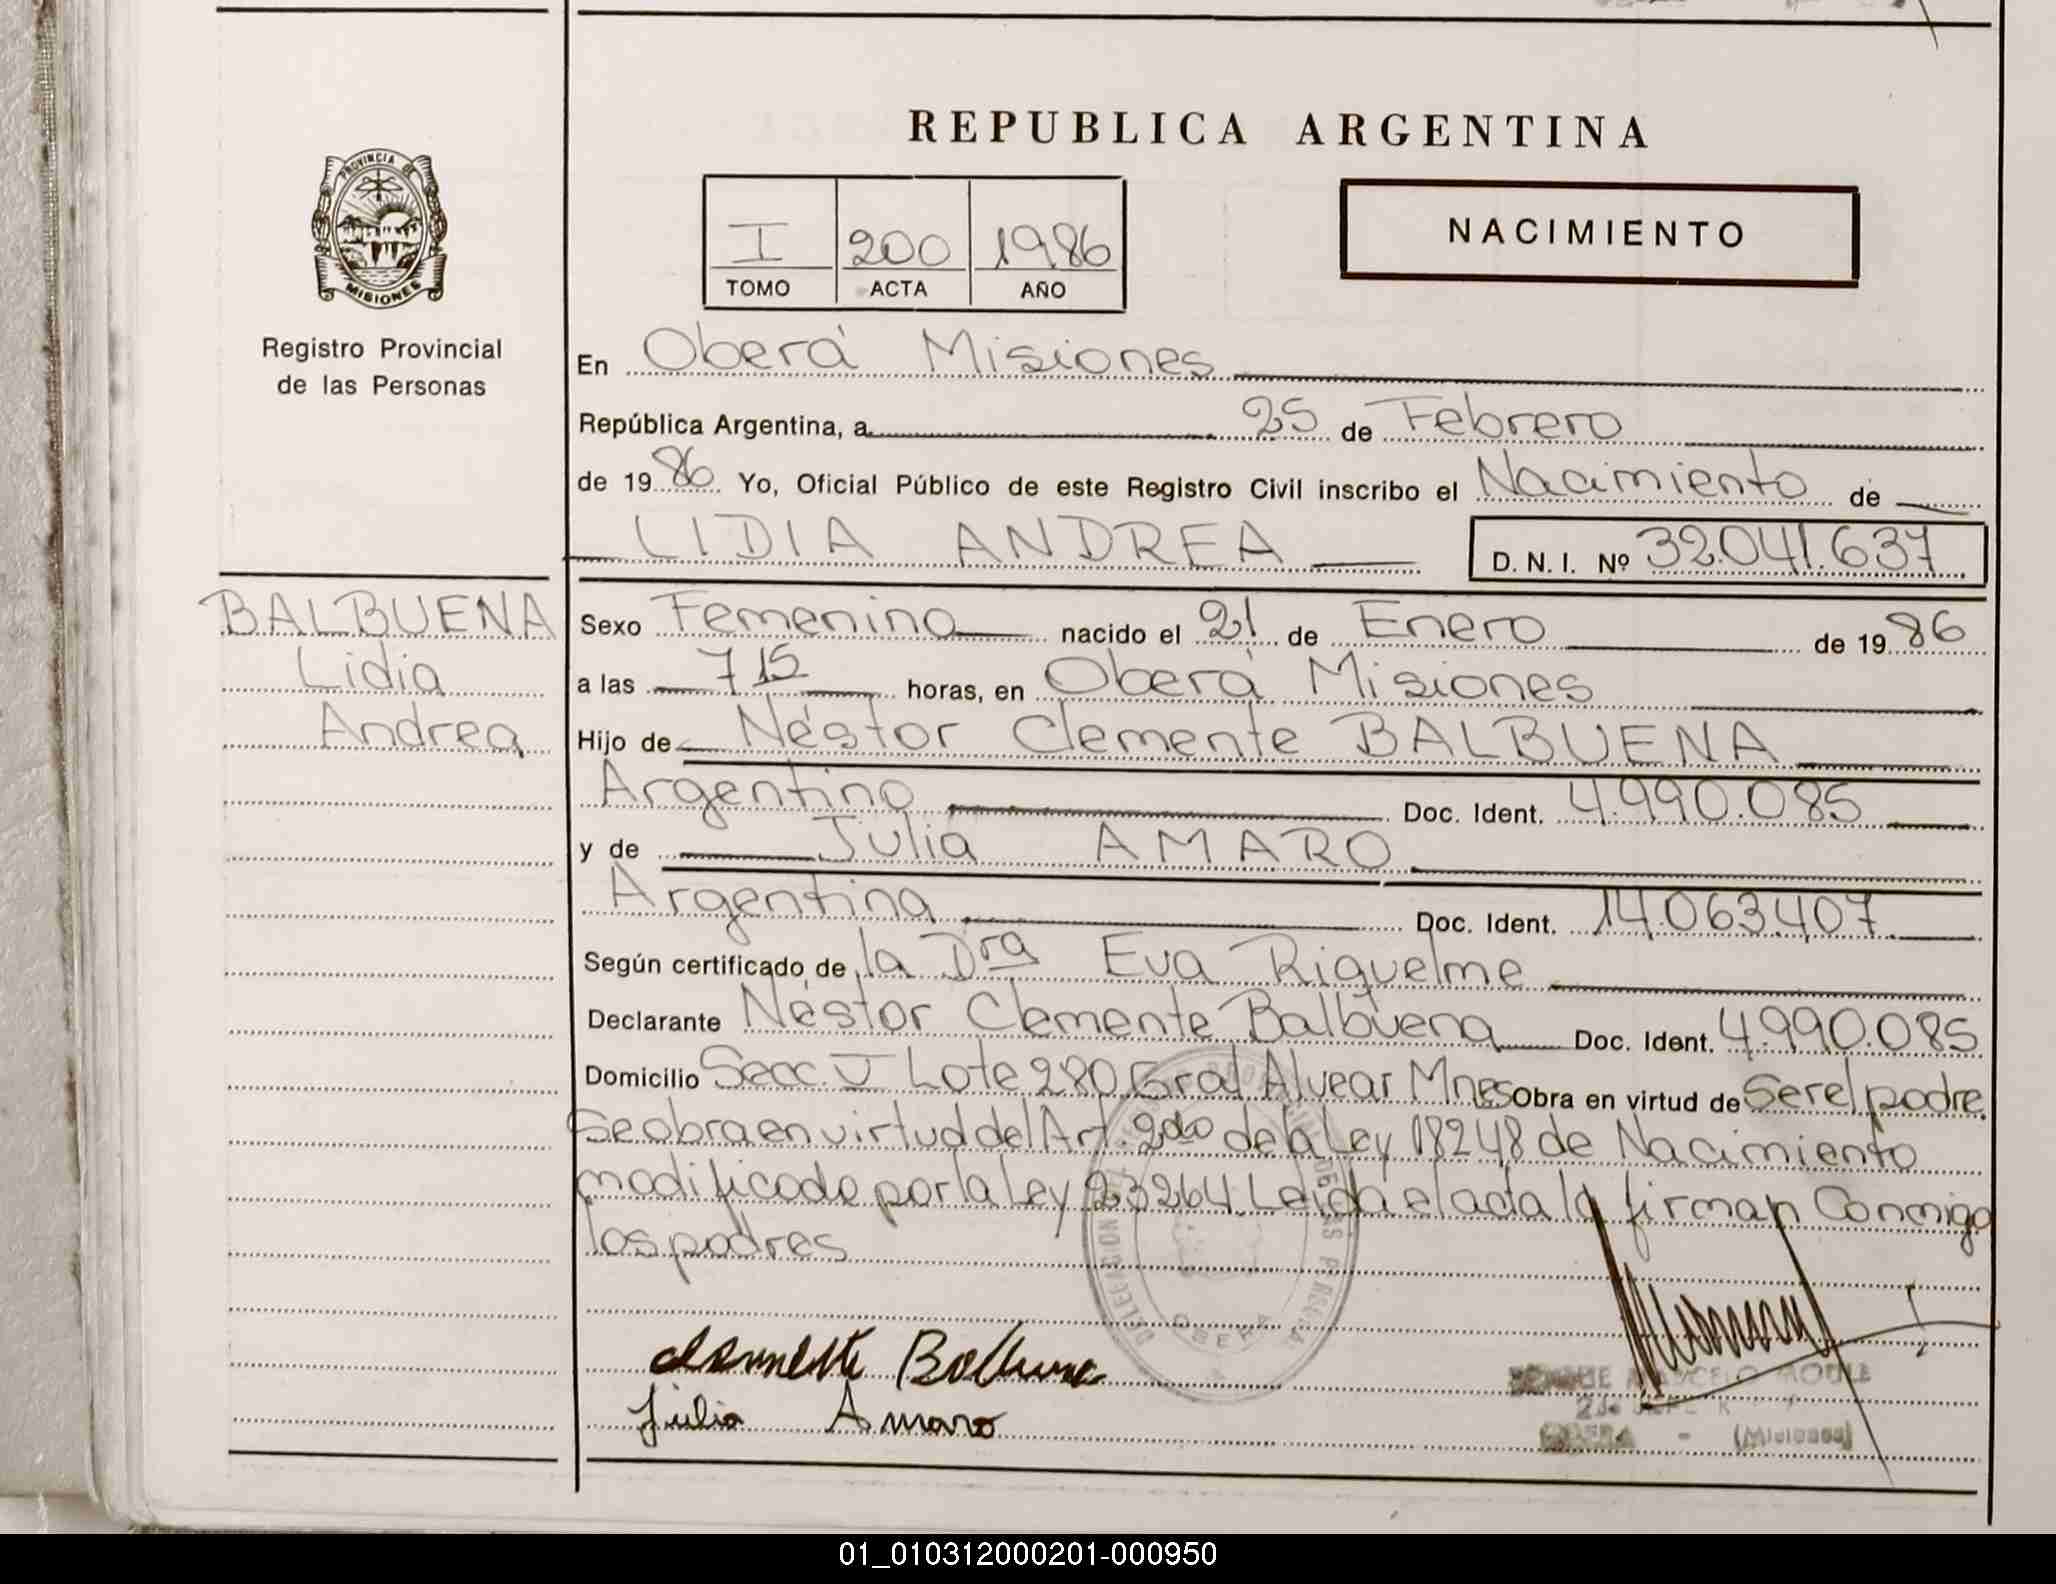 REPUBLICA ARGENTINA
PROVINCIA DE
MISIONES
Registro Provincial
de las Personas
I 200 1986
TOMO ACTA AÑO
NACIMIENTO
En Oberá Misiones
República Argentina, a 25 de Febrero
de 1986 Yo, Oficial Público de este Registro Civil inscribo el Nacimiento de
LIDIA ANDREA D. N. I. Nº 32.041.637
BALBUENA
Lidia
Andrea
Sexo Femenino nacido el 21 de Enero de 1986
a las 715 horas, en Oberá Misiones
Hijo de Néstor Clemente BALBUENA
Argentino Doc. Ident. 4.990.085
y de Julia AMARO
Argentina Doc. Ident. 14.063.407
Según certificado de la Dra Eva Riquelme
Declarante Néstor Clemente Balbuena Doc. Ident. 4.990.085
Domicilio Secc. V Lote 280 Gral Alvear Mnes Obra en virtud de Ser el padre.
Se obra en virtud del Art. 2do de la Ley 18248 de Nacimiento
modificado por la Ley 23264 Leida el acta la firman Conmigo
los padres
DELEGACION
OBERA
Clemente Balbuena
Julia Amaro
MARCELO
OBERA - (Misiones)
01_010312000201-000950